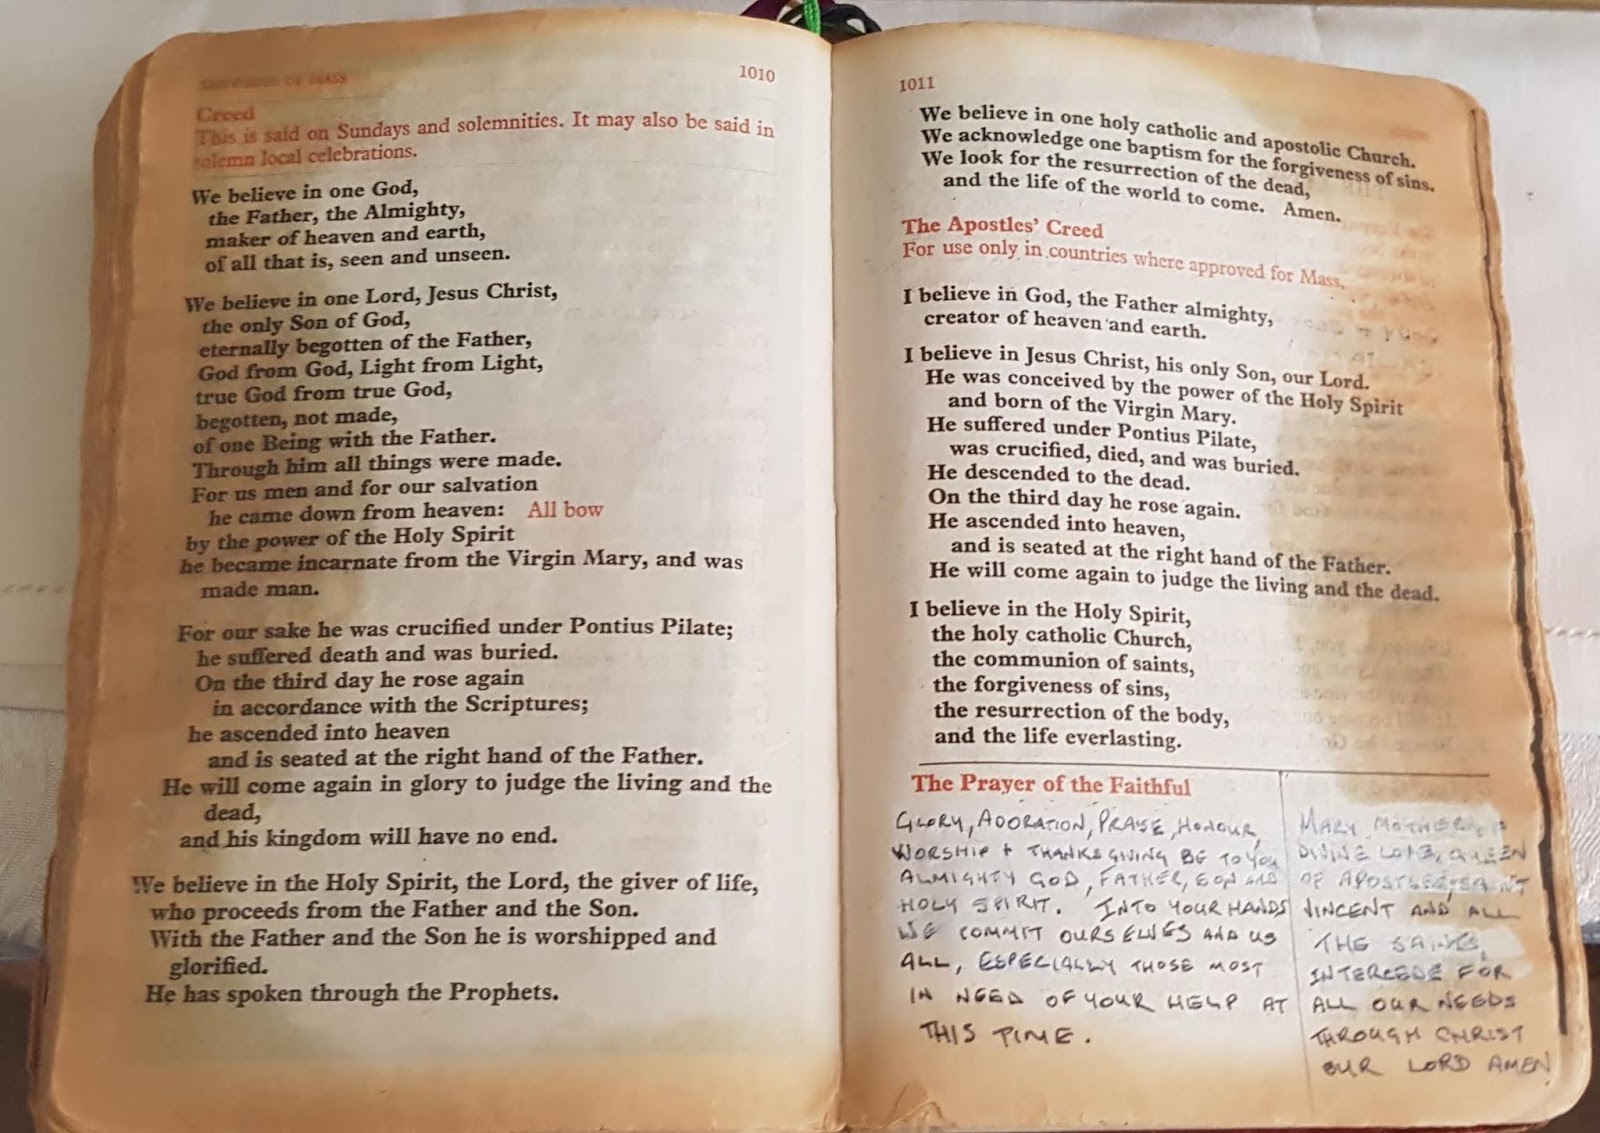 THE ORDER OF MASS 1010
Creed
This is said on Sundays and solemnities. It may also be said in
solemn local celebrations.
We believe in one God,
the Father, the Almighty,
maker of heaven and earth,
of all that is, seen and unseen.
We believe in one Lord, Jesus Christ,
the only Son of God,
eternally begotten of the Father,
God from God, Light from Light,
true God from true God,
begotten, not made,
of one Being with the Father.
Through him all things were made.
For us men and for our salvation
he came down from heaven: All bow
by the power of the Holy Spirit
he became incarnate from the Virgin Mary, and was
made man.
For our sake he was crucified under Pontius Pilate;
he suffered death and was buried.
On the third day he rose again
in accordance with the Scriptures;
he ascended into heaven
and is seated at the right hand of the Father.
He will come again in glory to judge the living and the
dead,
and his kingdom will have no end.
We believe in the Holy Spirit, the Lord, the giver of life,
who proceeds from the Father and the Son.
With the Father and the Son he is worshipped and
glorified.
He has spoken through the Prophets.
1011
We believe in one holy catholic and apostolic Church.
We acknowledge one baptism for the forgiveness of sins.
We look for the resurrection of the dead,
and the life of the world to come. Amen.
The Apostles' Creed
For use only in countries where approved for Mass.
I believe in God, the Father almighty,
creator of heaven and earth.
I believe in Jesus Christ, his only Son, our Lord.
He was conceived by the power of the Holy Spirit
and born of the Virgin Mary.
He suffered under Pontius Pilate,
was crucified, died, and was buried.
He descended to the dead.
On the third day he rose again.
He ascended into heaven,
and is seated at the right hand of the Father.
He will come again to judge the living and the dead.
I believe in the Holy Spirit,
the holy catholic Church,
the communion of saints,
the forgiveness of sins,
the resurrection of the body,
and the life everlasting.
The Prayer of the Faithful
GLORY, ADORATION, PRAISE, HONOUR
WORSHIP + THANKSGIVING BE TO YOU
ALMIGHTY GOD, FATHER, SON AND
HOLY SPIRIT. INTO YOUR HANDS
WE COMMIT OURSELVES AND US
ALL, ESPECIALLY THOSE MOST
IN NEED OF YOUR HELP AT
THIS TIME.
MARY MOTHER
DIVINE LOVE, QUEEN
OF APOSTLES, SAINT
VINCENT AND ALL
THE SAINTS,
INTERCEDE FOR
ALL OUR NEEDS
THROUGH CHRIST
OUR LORD AMEN